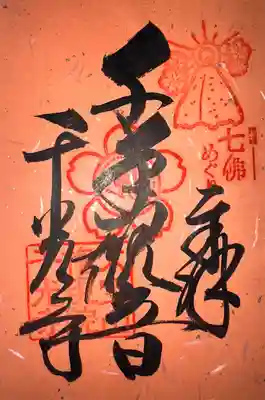 七佛
めぐ
奉拝
千手観音
千光寺